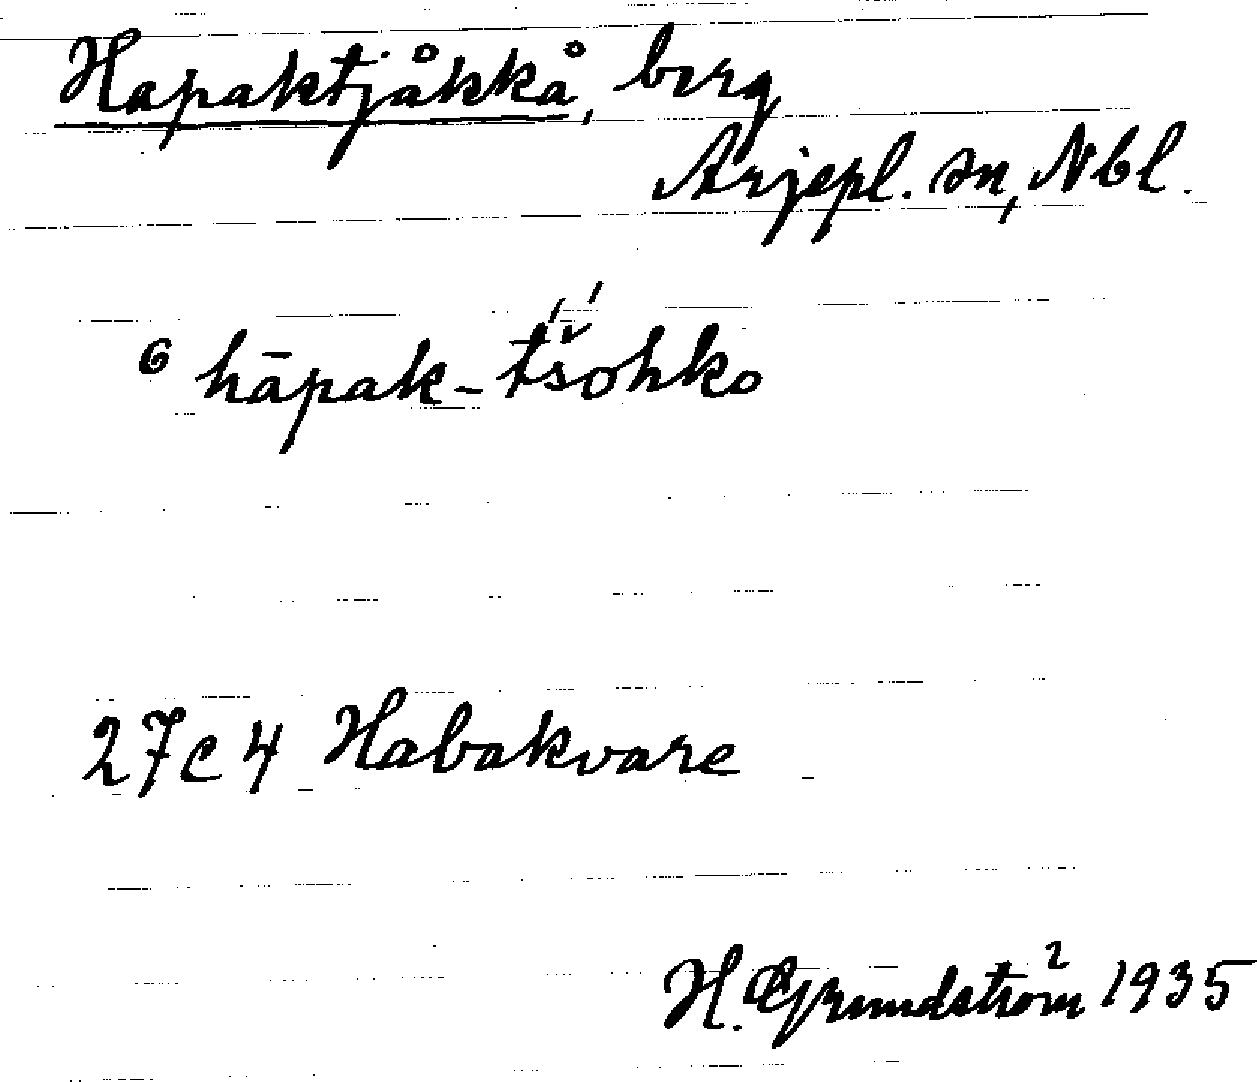 Hapaktjåkkå, berg
Arjepl. sn, Nbl.
6 hāpak-t́š́ohko
27c4 Habakvare
H. Grundström 1935